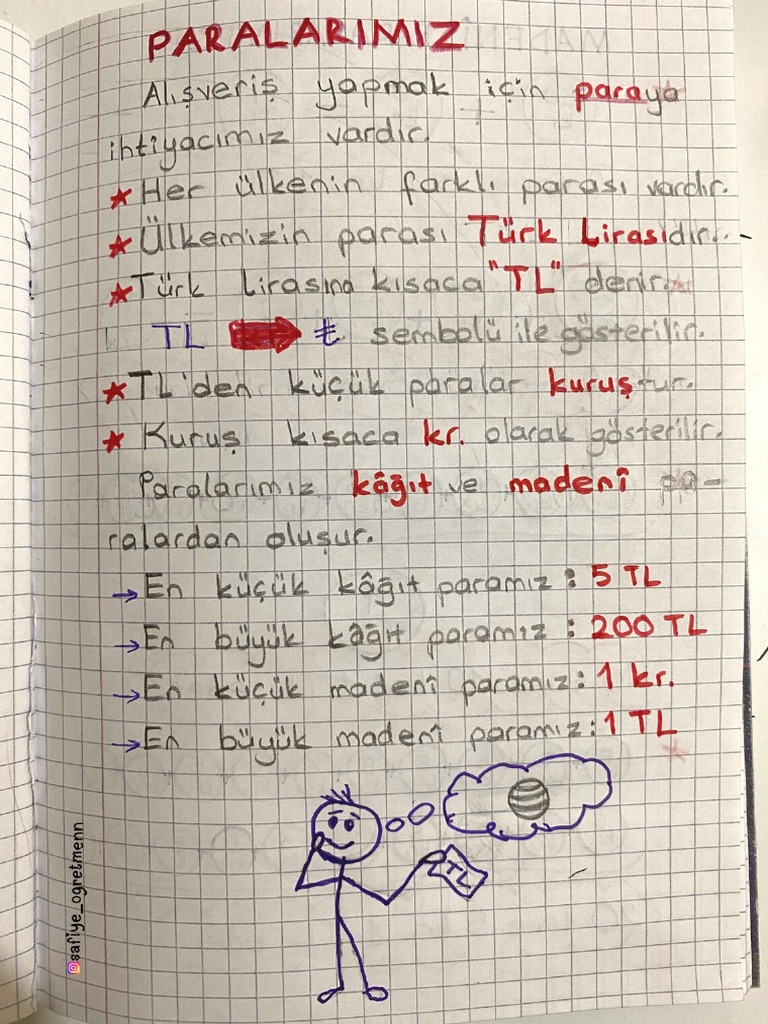 PARALARIMIZ
Alışveriş yapmak için paraya
ihtiyacımız vardır.
★ Her ülkenin farklı parası vardır.
★ Ülkemizin parası Türk Lirasıdır.
★ Türk lirasına kısaca "TL" denir.
TL ➡ ₺ sembolü ile gösterilir.
★ TL'den küçük paralar kuruştur.
★ Kuruş kısaca kr. olarak gösterilir.
Paralarımız kâğıt ve madenî pa-
ralardan oluşur.
→ En küçük kâğıt paramız : 5 TL
→ En büyük kâğıt paramız : 200 TL
→ En küçük madenî paramız : 1 kr.
→ En büyük madenî paramız : 1 TL
TL
@safiye_ogretmenn